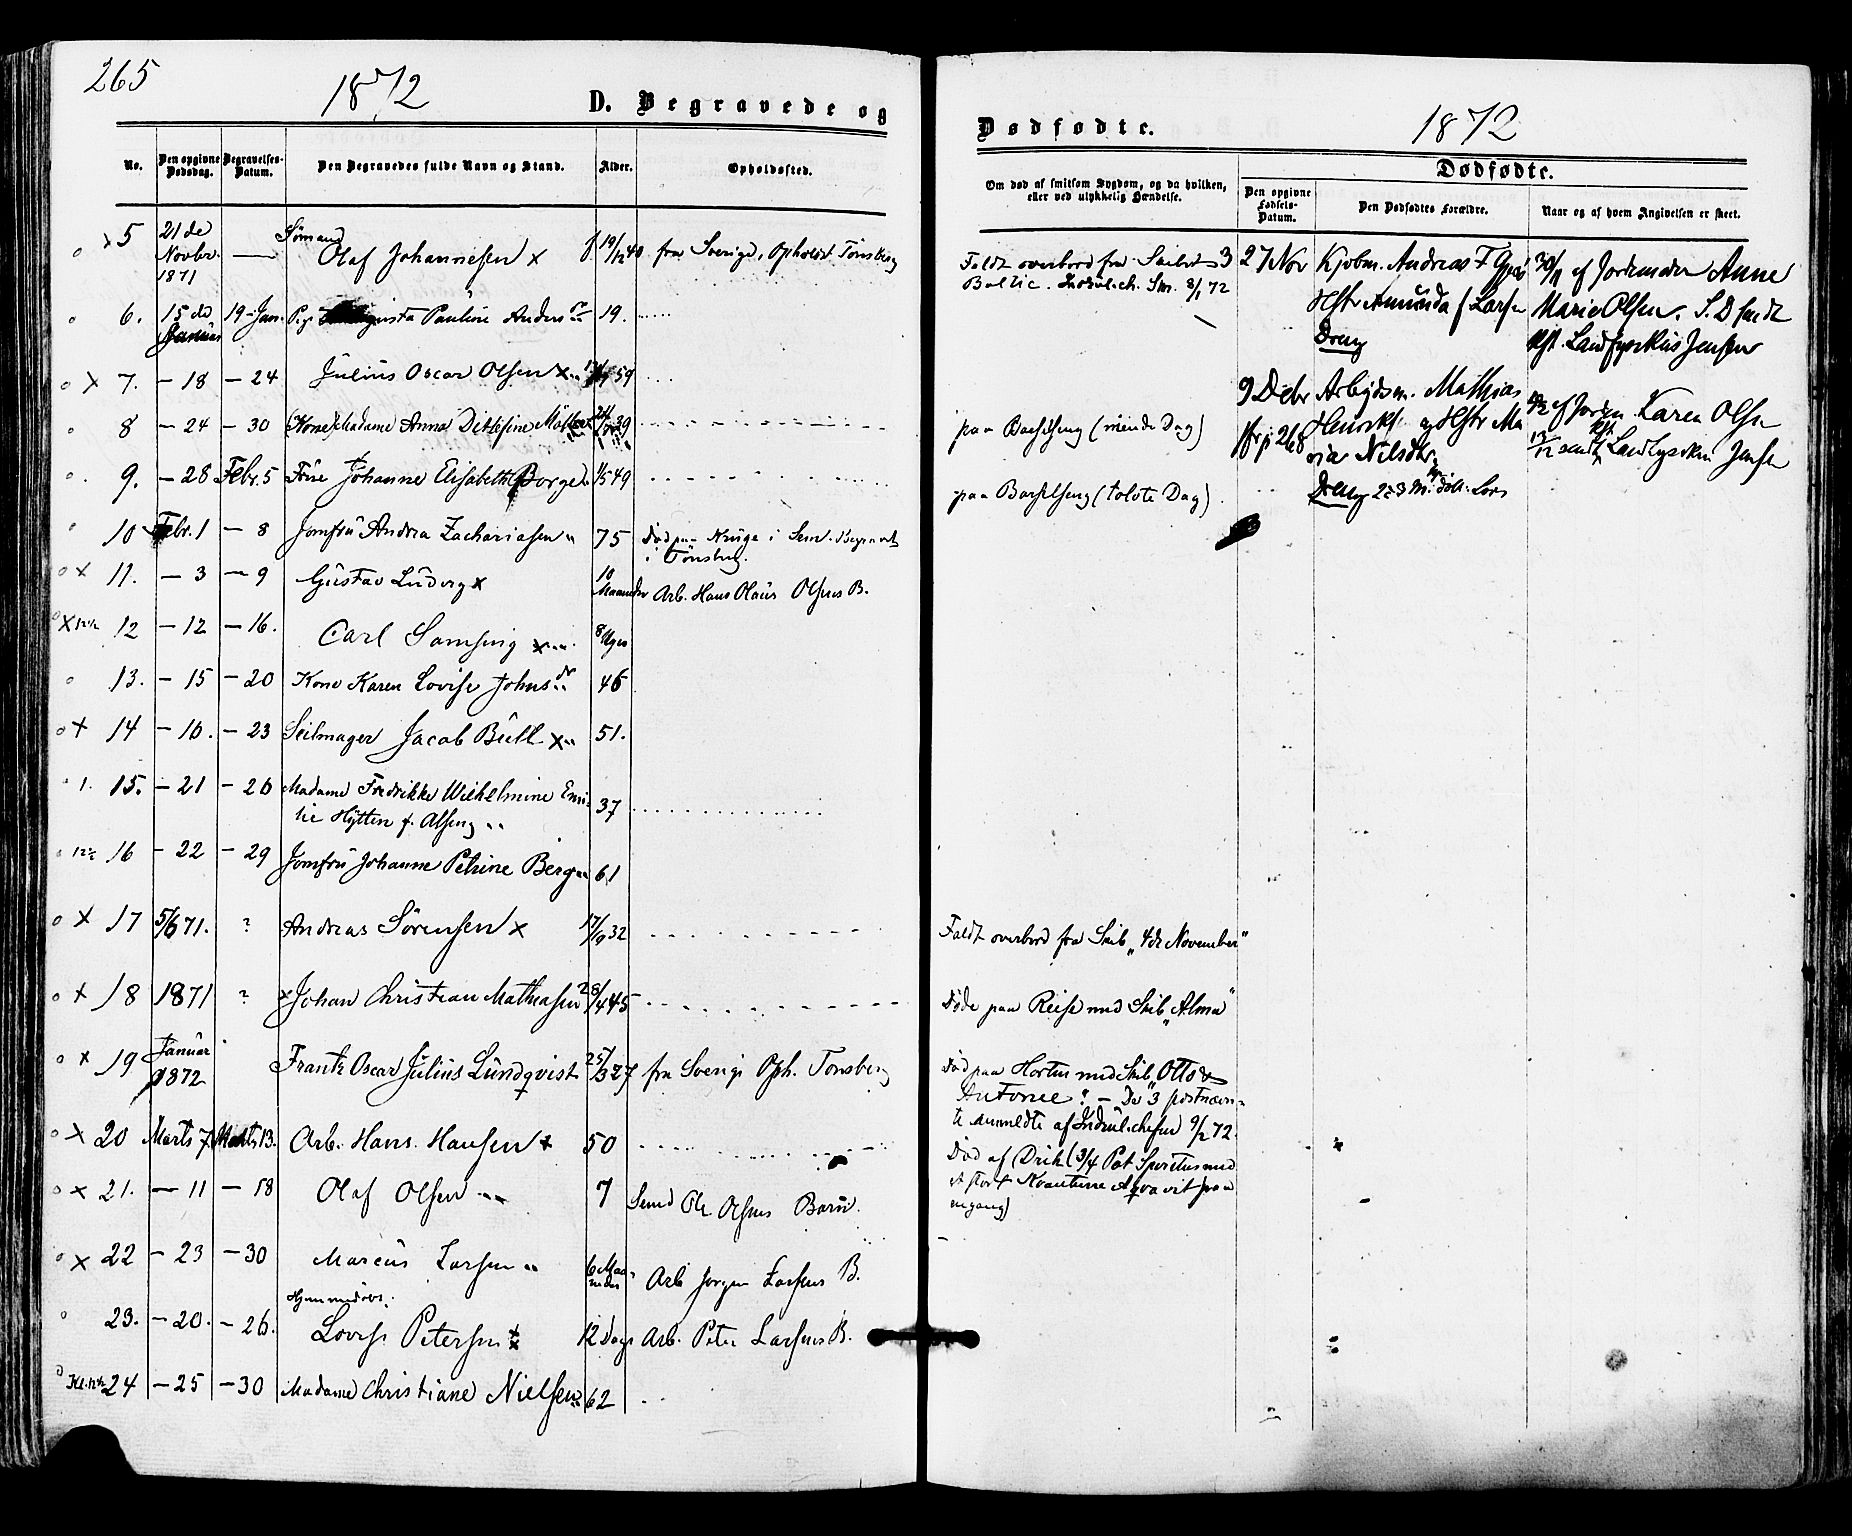 265
1872
D. Begravede og
No.
Den opgivne Dødsdag.
Begravelses-Datum.
Den Begravedes fulde Navn og Stand.
Alder.
Opholdssted.
5 21de Novbr. 1871 — Sømand Olaf Johannesen x f. 19/12 40 fra Sverige, Opholdt Tønsberg
6. 15de Januar 19 - Jan. Pige Pauline 19.
x 7. - 18 - 24 Julius Oscar Olsen x 59
8 - 24 - 30 (Kone) Madame Anna Ditlefine 39
9. - 28 Febr. 5 Frue Johanne Elisabeth Borgen 1/5 49
10 Febr. 1 - 8 Jomfru Andrea Zachariasen 75 Død paa i Sem. Begravet
i Tønsberg.
x 11. - 3 - 9 Gustav Ludvig x 10 Maaneder Arb. Hans Olaus Olsens B.
x 12 - 12 - 16. Carl Samsing x 8 Uger
13. - 15 - 20 Kone Karen Lovise Johns 46
x 14 - 16. - 23 Seilmager Jacob Bull x 51.
15. - 21 - 26 Madame Fredrikke Wilhelmine Emi-
lie Hytten f. 37
16 - 22 - 29 Jomfru Johanne Petrine Berg 61
x 17 5/6 71. ? Andreas Sörensen x 17/10 32
x 18 1871 ? x Johan Christian Mathiasen 28/4 45
x 19 Januar 1872 Frantz Oscar Julius Lundqvist 25/3 27 fra Sverige Oph. Tonsberg
x 20 Marts 7 Marts 13. Arb. Hans Hansen x 50
x 21. - 11 - 18 Olaf Olsen 7 Smed Ole Olsens Barn.
x 22 - 23 - 30 Marcus Larsen 6 Maaneder Arb Jørgen Larsens B.
Hjemmedøbt.
23. - 20. - 26. Lovise Petersen 12 Dage Arb. Peter Larsens B.
24 - 25 - 30 Madame Christiane Nielsen 62
Dødfødte.
1872
Om død af smitsom Sygdom, og da hvilken,
eller ved ulykkelig Hændelse.
Dødfødte.
Den opgivne Fødsels-Datum.
Den Dødfødtes Forældre.
Naar og af hvem Angivelsen er skeet.
Faldt overbord fra Skibet
Baltic. Indrul.ch. Sk. 8/1 72
paa Barselseng (niende Dag)
paa Barselseng (tolvte Dag)
Faldt overbord fra Skib „4de November"
Døde paa Reise med Skib „Alma"
Død paa Horten med Skib „Otto &
Antonie". - De 3 sidstnævn-
te anmeldte af Indrul.chefen 9/2 72.
Død af Drik (3/4 Pot Spiritus med
et stort Kvantum Aqvavit paa
engang)
3 27 Nov Kjøbm. Andreas F
Hstr Amunda f Larsen
Dreng
30/11 af Jordemoder Anne
Marie Olsen. S.D. sendt
Landfysikus Jensen
9 Decbr Arbejdsm. Mathias
Henriks. og Hstr Ma
ria Nilsdtr.
Dreng
af Jordm. Karen Olsen
sendt Landfysikus Jensen
Cfr p. 268